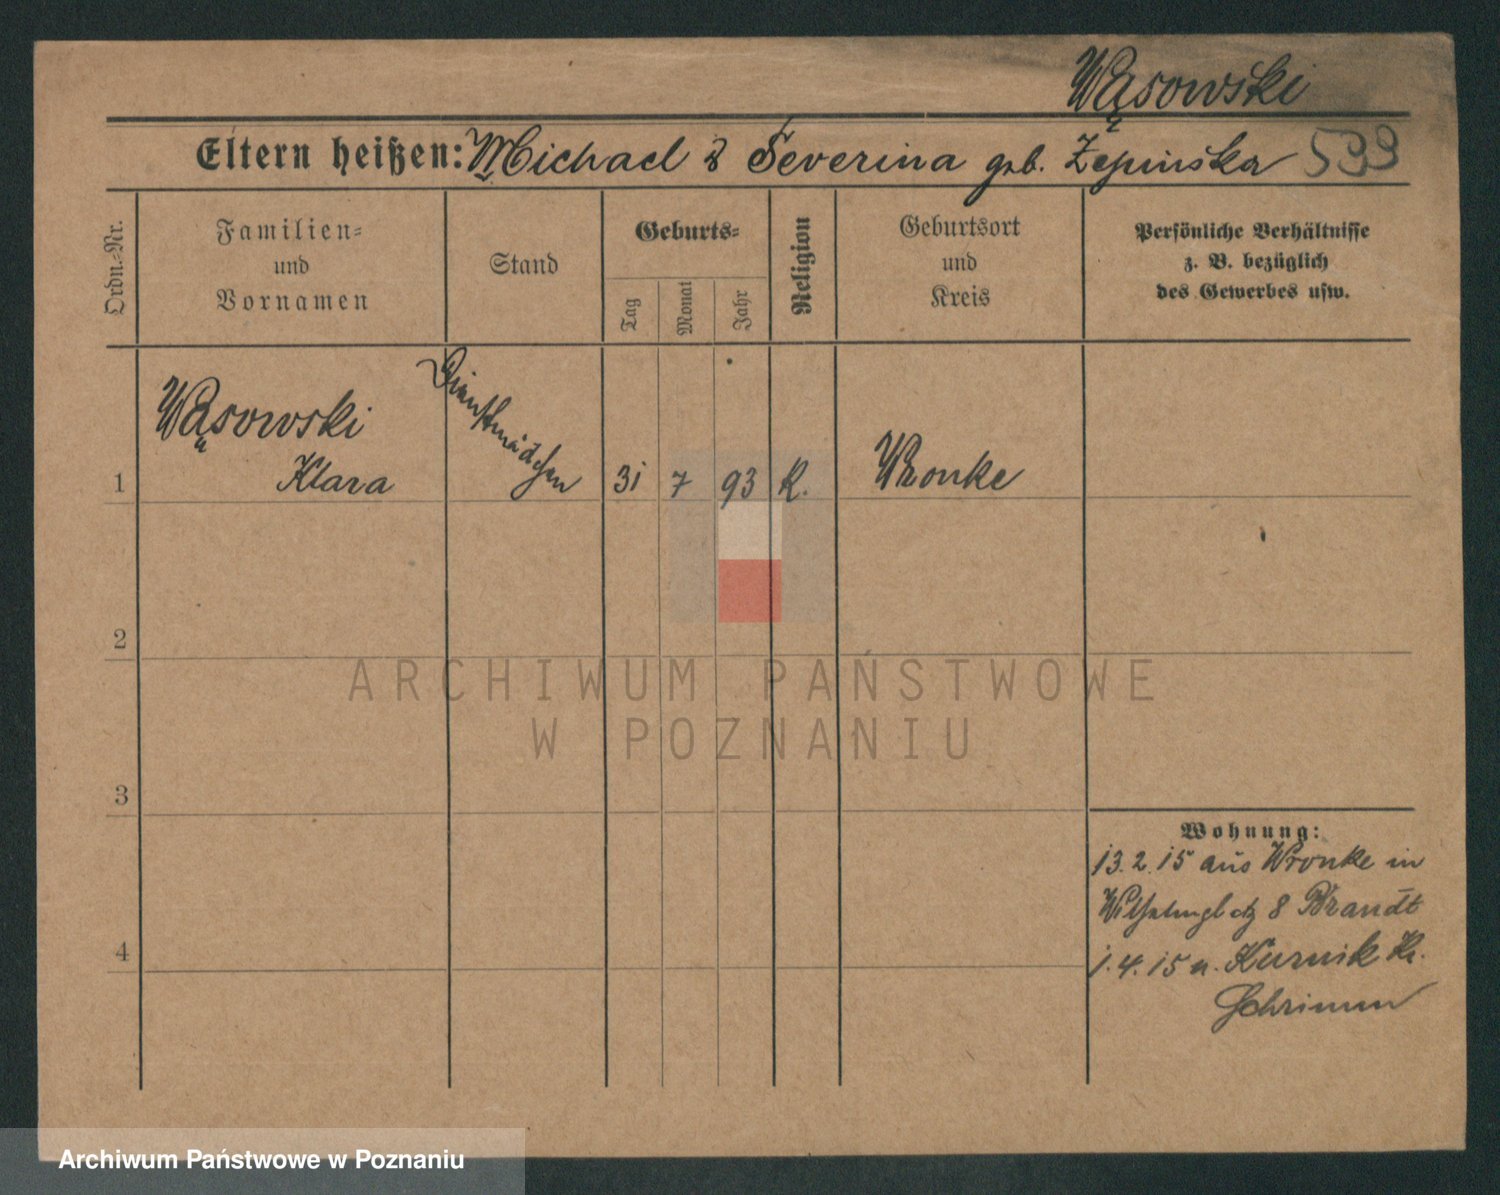 Wąsowski
Eltern heißen: Michael & Severina geb.
539
Ordn.-Nr.
Familien-
und
Vornamen
Stand
Geburts-
Tag
Monat
Jahr
Religion
Geburtsort
und
Kreis
Persönliche Verhältnisse
z. B. bezüglich
des Gewerbes usw.
1
Wąsowski
Klara
Dienstmädchen
31
7
93
K.
Wronke
2
3
4
Wohnung:
13.2.15 aus Wronke in
Wilhelmpl. 8 Brandt
1.4.15 n. Kurnik Kr.
Schrimm
ARCHIWUM PAŃSTWOWE
W POZNANIU
Archiwum Państwowe w Poznaniu